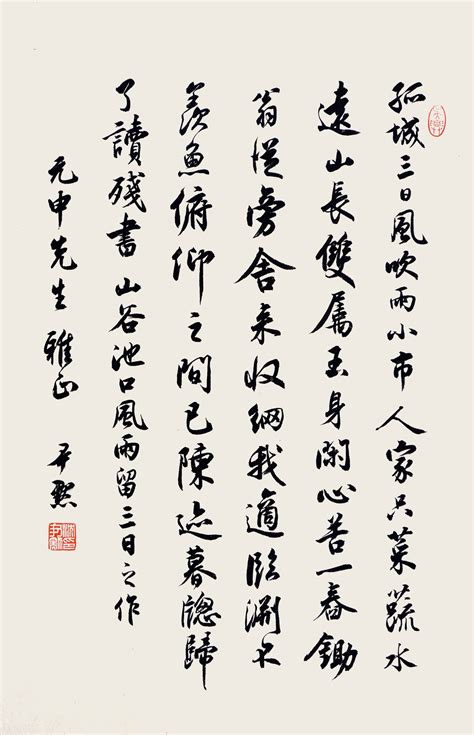 孤城三日風吹雨小市人家只菜蔬水
遠山長雙屬玉身閑心苦一舂鋤
翁從旁舍來收網我適臨淵不
羨魚俯仰之間已陳迹暮窗歸
了讀殘書 山谷池口風雨留三日之作
元申先生雅正 尹默